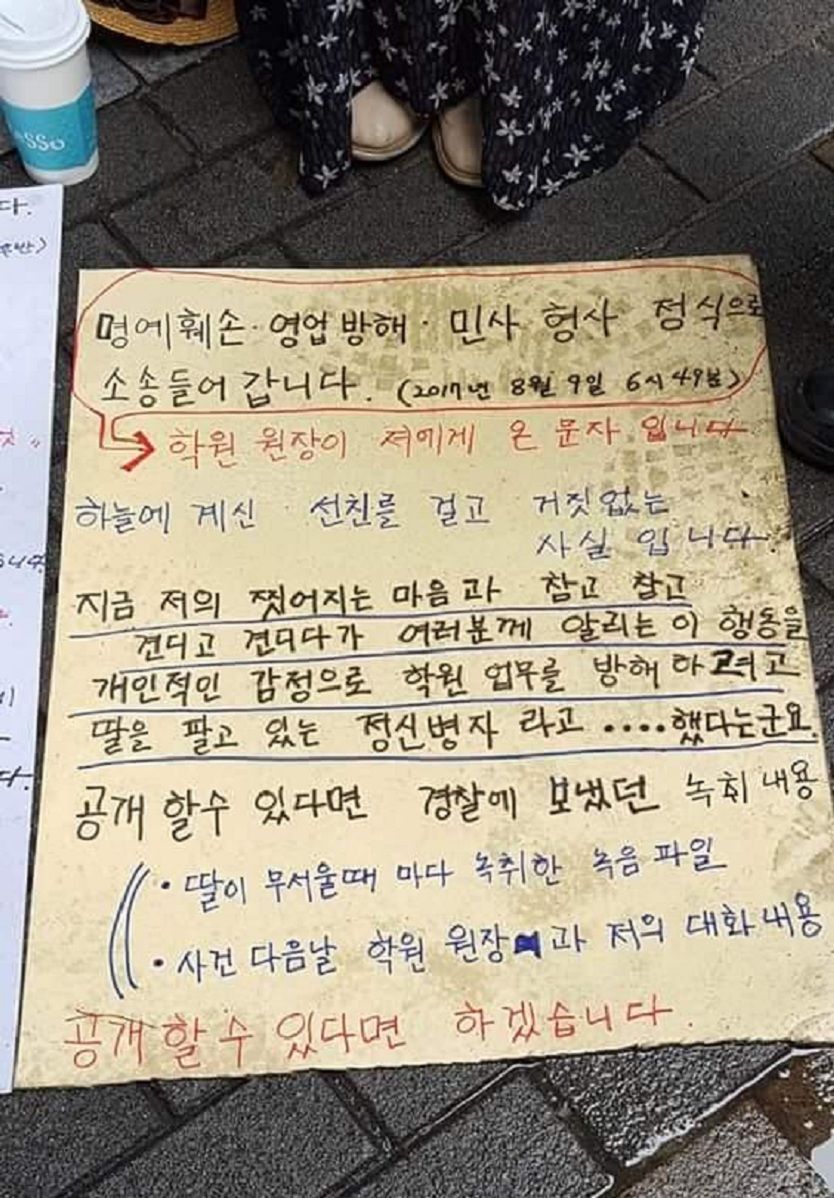 명예훼손·영업방해·민사 형사 정식으로
소송들어 갑니다. (2017년 8월 9일 6시 49분)
학원 원장이 저에게 온 문자 입니다
하늘에 계신 선친를 걸고 거짓없는
사실 입니다.
지금 저의 찢어지는 마음과 참고 참고
견디고 견디다가 여러분께 알리는 이 행동을
개인적인 감정으로 학원 업무를 방해 하려고
딸을 팔고 있는 정신병자 라고 ....했다는군요.
공개 할수 있다면 경찰에 보냈던 녹취 내용
· 딸이 무서울때 마다 녹취한 녹음 파일
· 사건 다음날 학원 원장과 저의 대화내용
공개 할 수 있다면 하겠습니다.